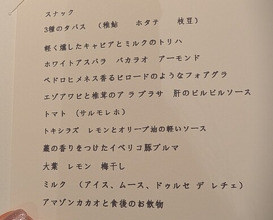 スナック
3種のタパス （稚鮎　ホタテ　枝豆）
軽く燻したキャビアとミルクのトリハ
ホワイトアスパラ　バカラオ　アーモンド
ペドロヒメネス香るビロードのようなフォアグラ
エゾアワビと椎茸のア ラ プラサ　肝のピルピルソース
トマト （サルモレホ）
トキシラズ　レモンとオリーブ油の軽いソース
藁の香りをつけたイベリコ豚プルマ
大葉　レモン　梅干し
ミルク （アイス、ムース、ドゥルセ デ レチェ）
アマゾンカカオと食後のお飲物